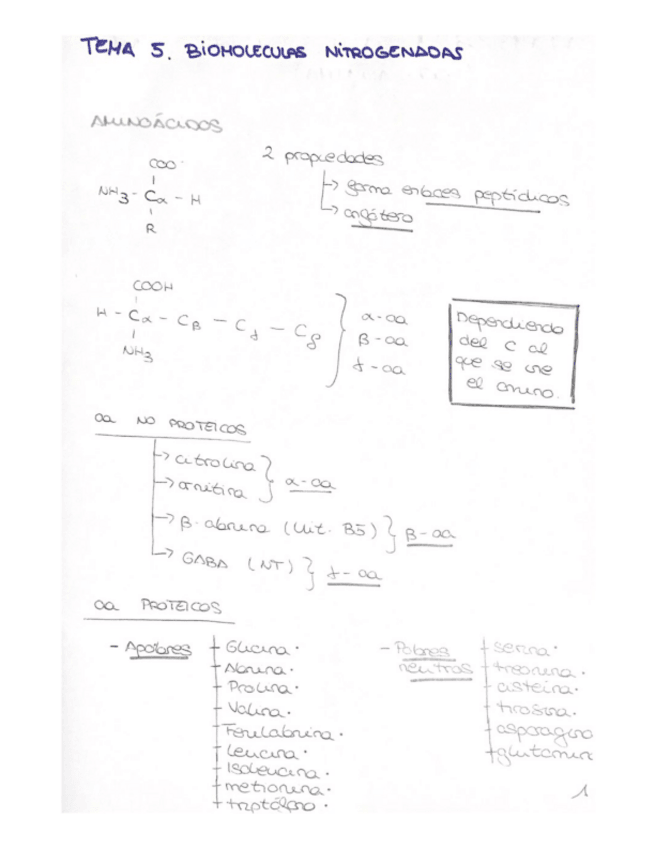 TEMA 5. BIOMOLECULAS NITROGENADAS
AMINOÁCIDOS
COO-
NH3 - Cα - H
R
2 propiedades
→ forma enlaces peptídicos
→ anfótero
COOH
H - Cα - Cβ - Cγ - Cδ
NH3
α-aa
β-aa
γ-aa
Dependiendo
del C al
que se une
el amino.
aa NO PROTEICOS
→ citrulina
→ ornitina
α-aa
→ β-alanina (Vit. B5) } β-aa
→ GABA (NT) } γ-aa
aa PROTEICOS
- Apolares
Glicina.
Alanina.
Prolina.
Valina.
Fenilalanina.
Leucina.
Isoleucina.
metionina.
triptófano.
- Polares
neutros
serina.
treonina.
cisteína.
tirosina.
asparagina
glutamina
1